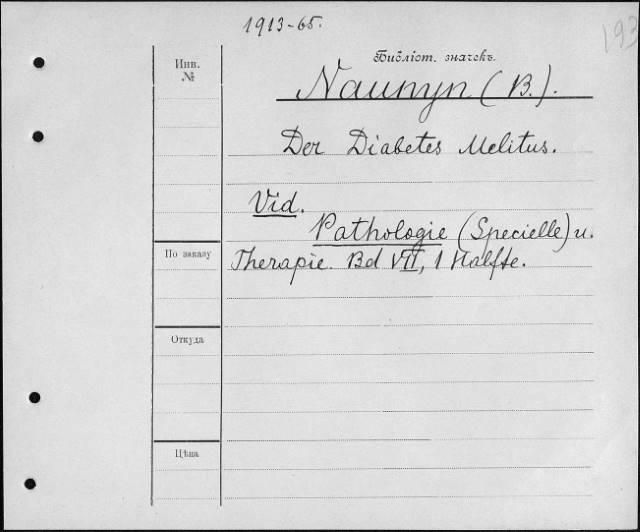 1913-65.
193
Инв.
№
Библіот. значекъ.
Naunyn (B.).
Der Diabetes Melitus.
Vid.
Pathologie (Specielle) u.
По заказу
Therapie. Bd VII, 1 Halfte.
Откуда
Цѣна